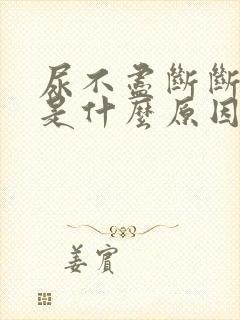 尿不盡斷斷
是什麼原因
姜賓